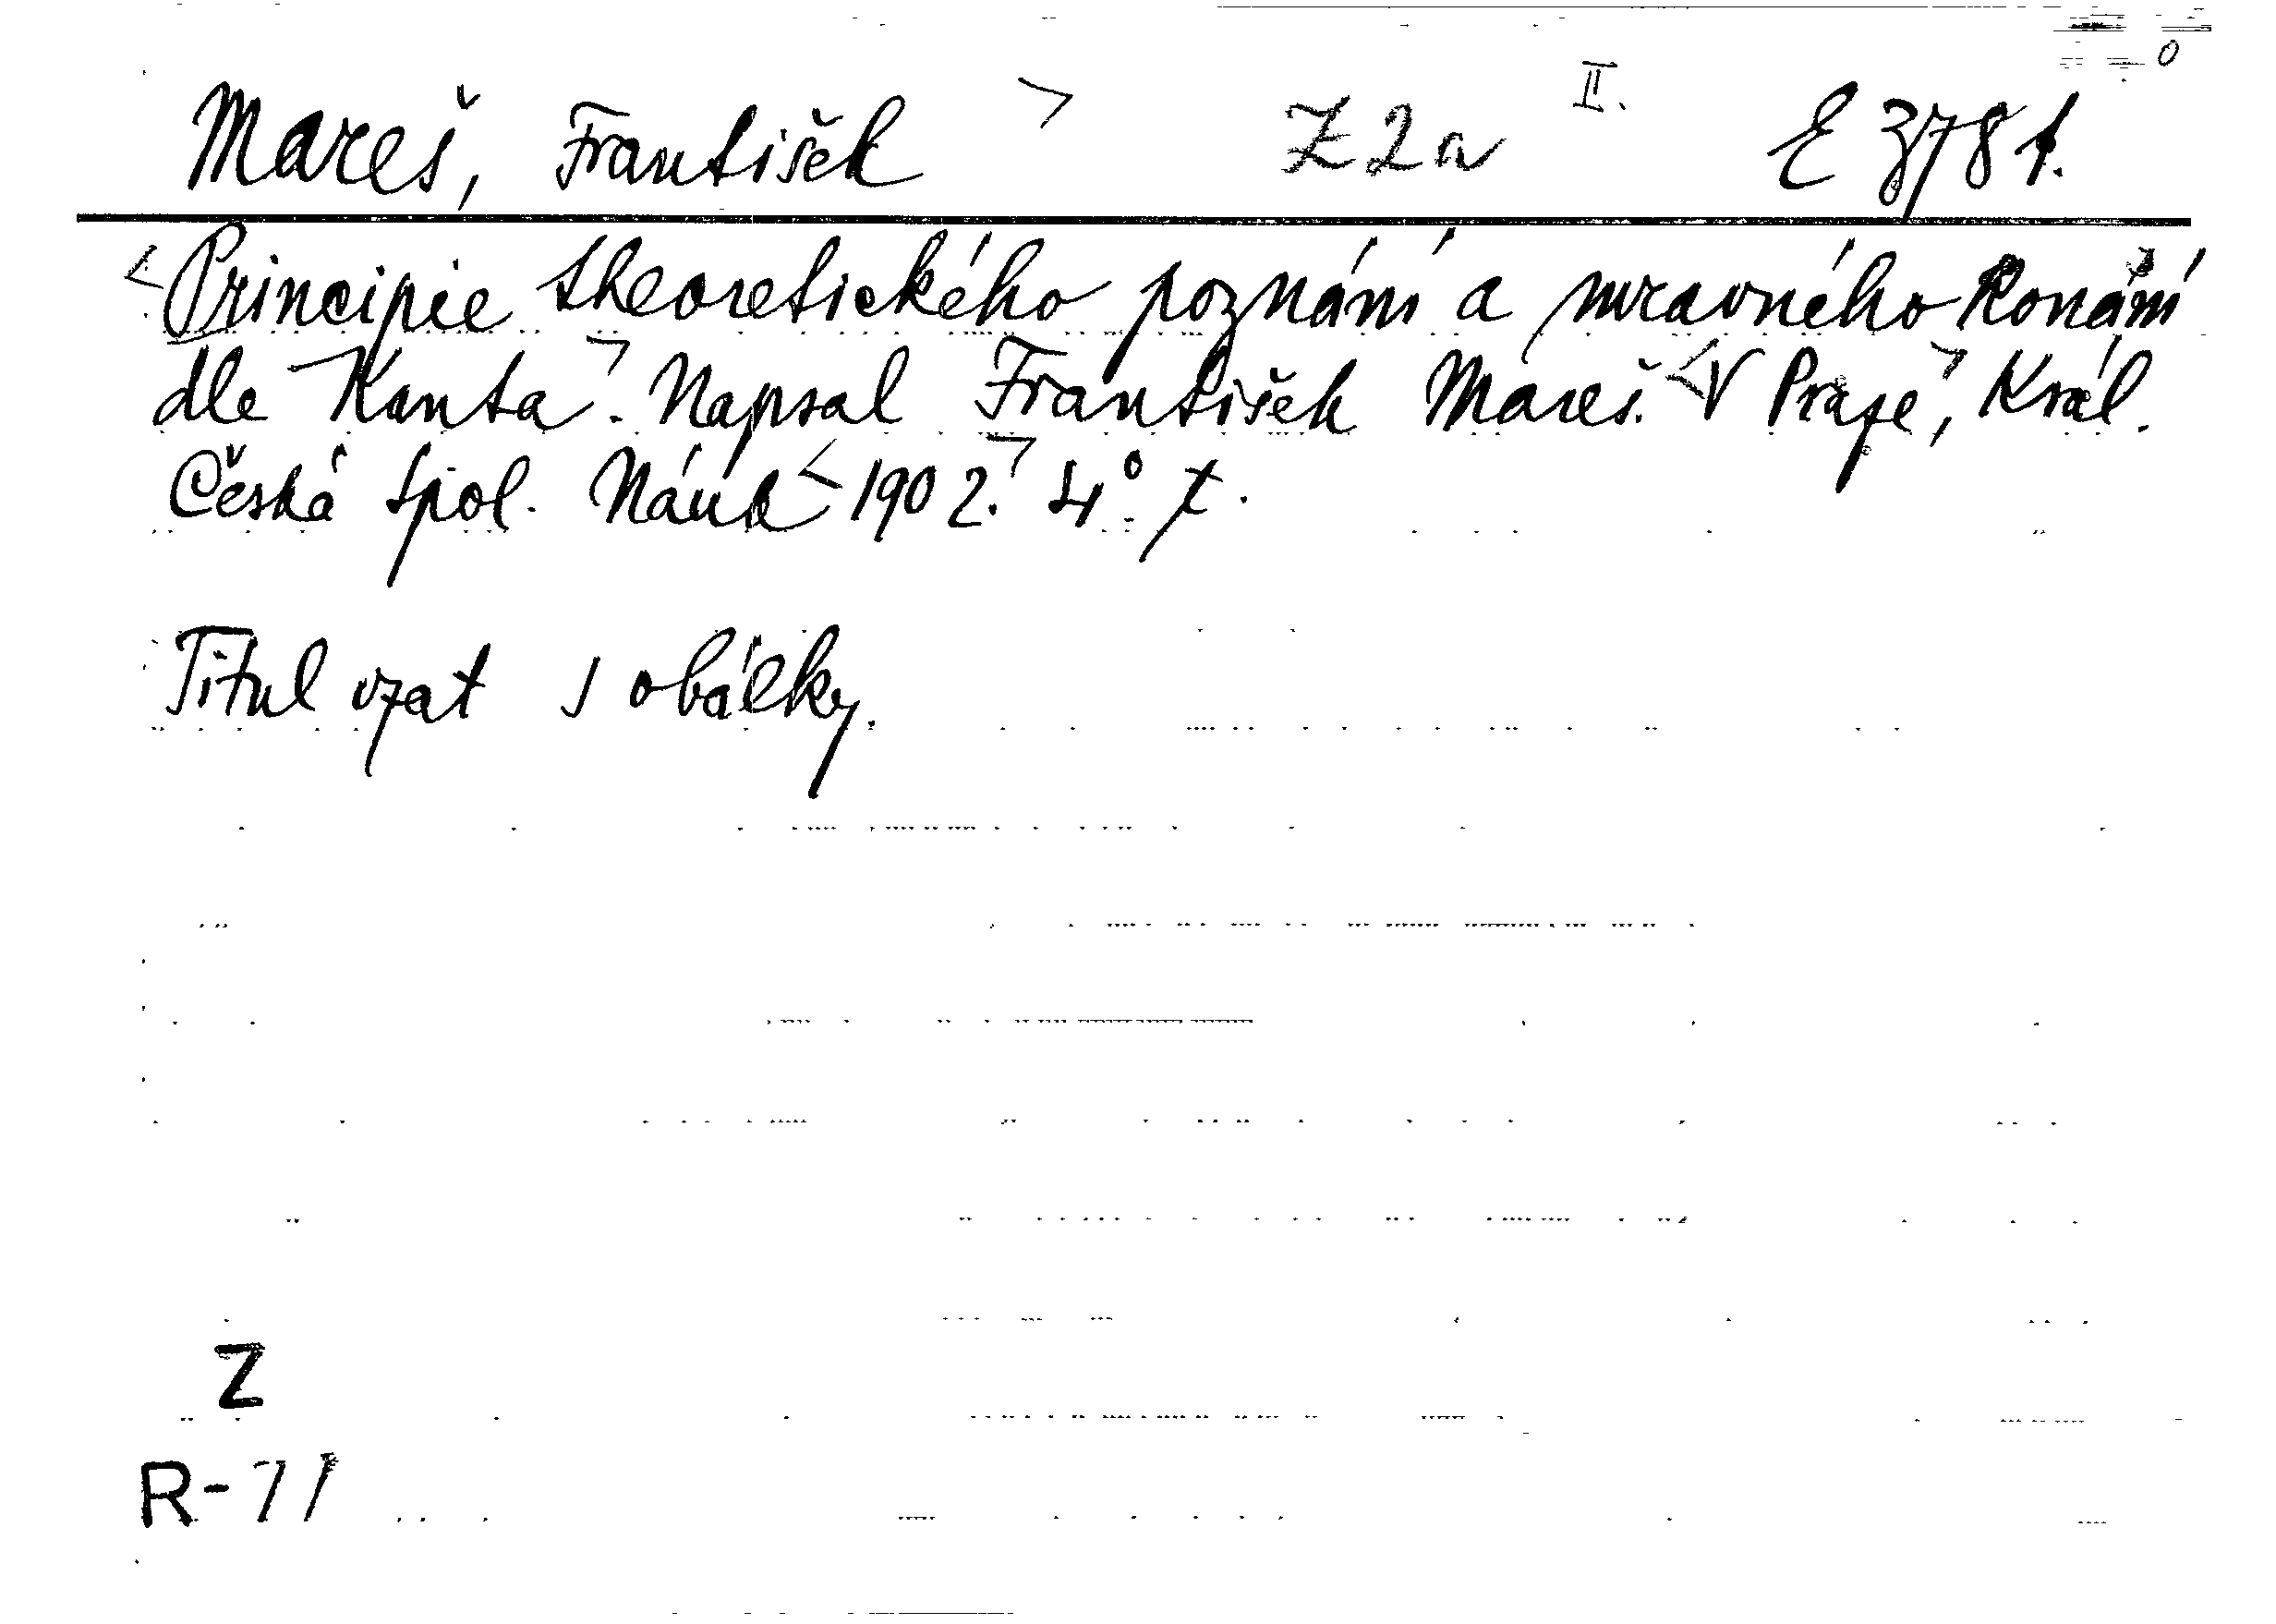 Mareš, František > Z 2a II. E 378 f.
<Principie theoretického poznání a mravného konání
dle Kanta>. Napsal František Mareš. <V Praze>, Král.
Česká Spol. Náuk <1902.> 4°
Titul vzat s obálky.
Z
R-71